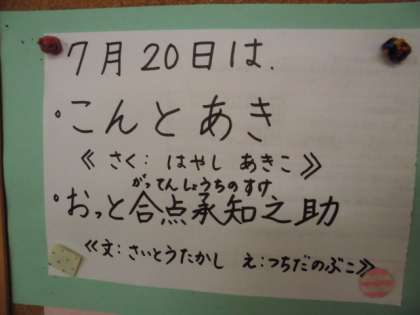 7月20日は.
・こんとあき
《さく: はやし あきこ》
がってんしょうちのすけ
・おっと合点承知之助
《文:さいとうたかし え:つちだのぶこ》